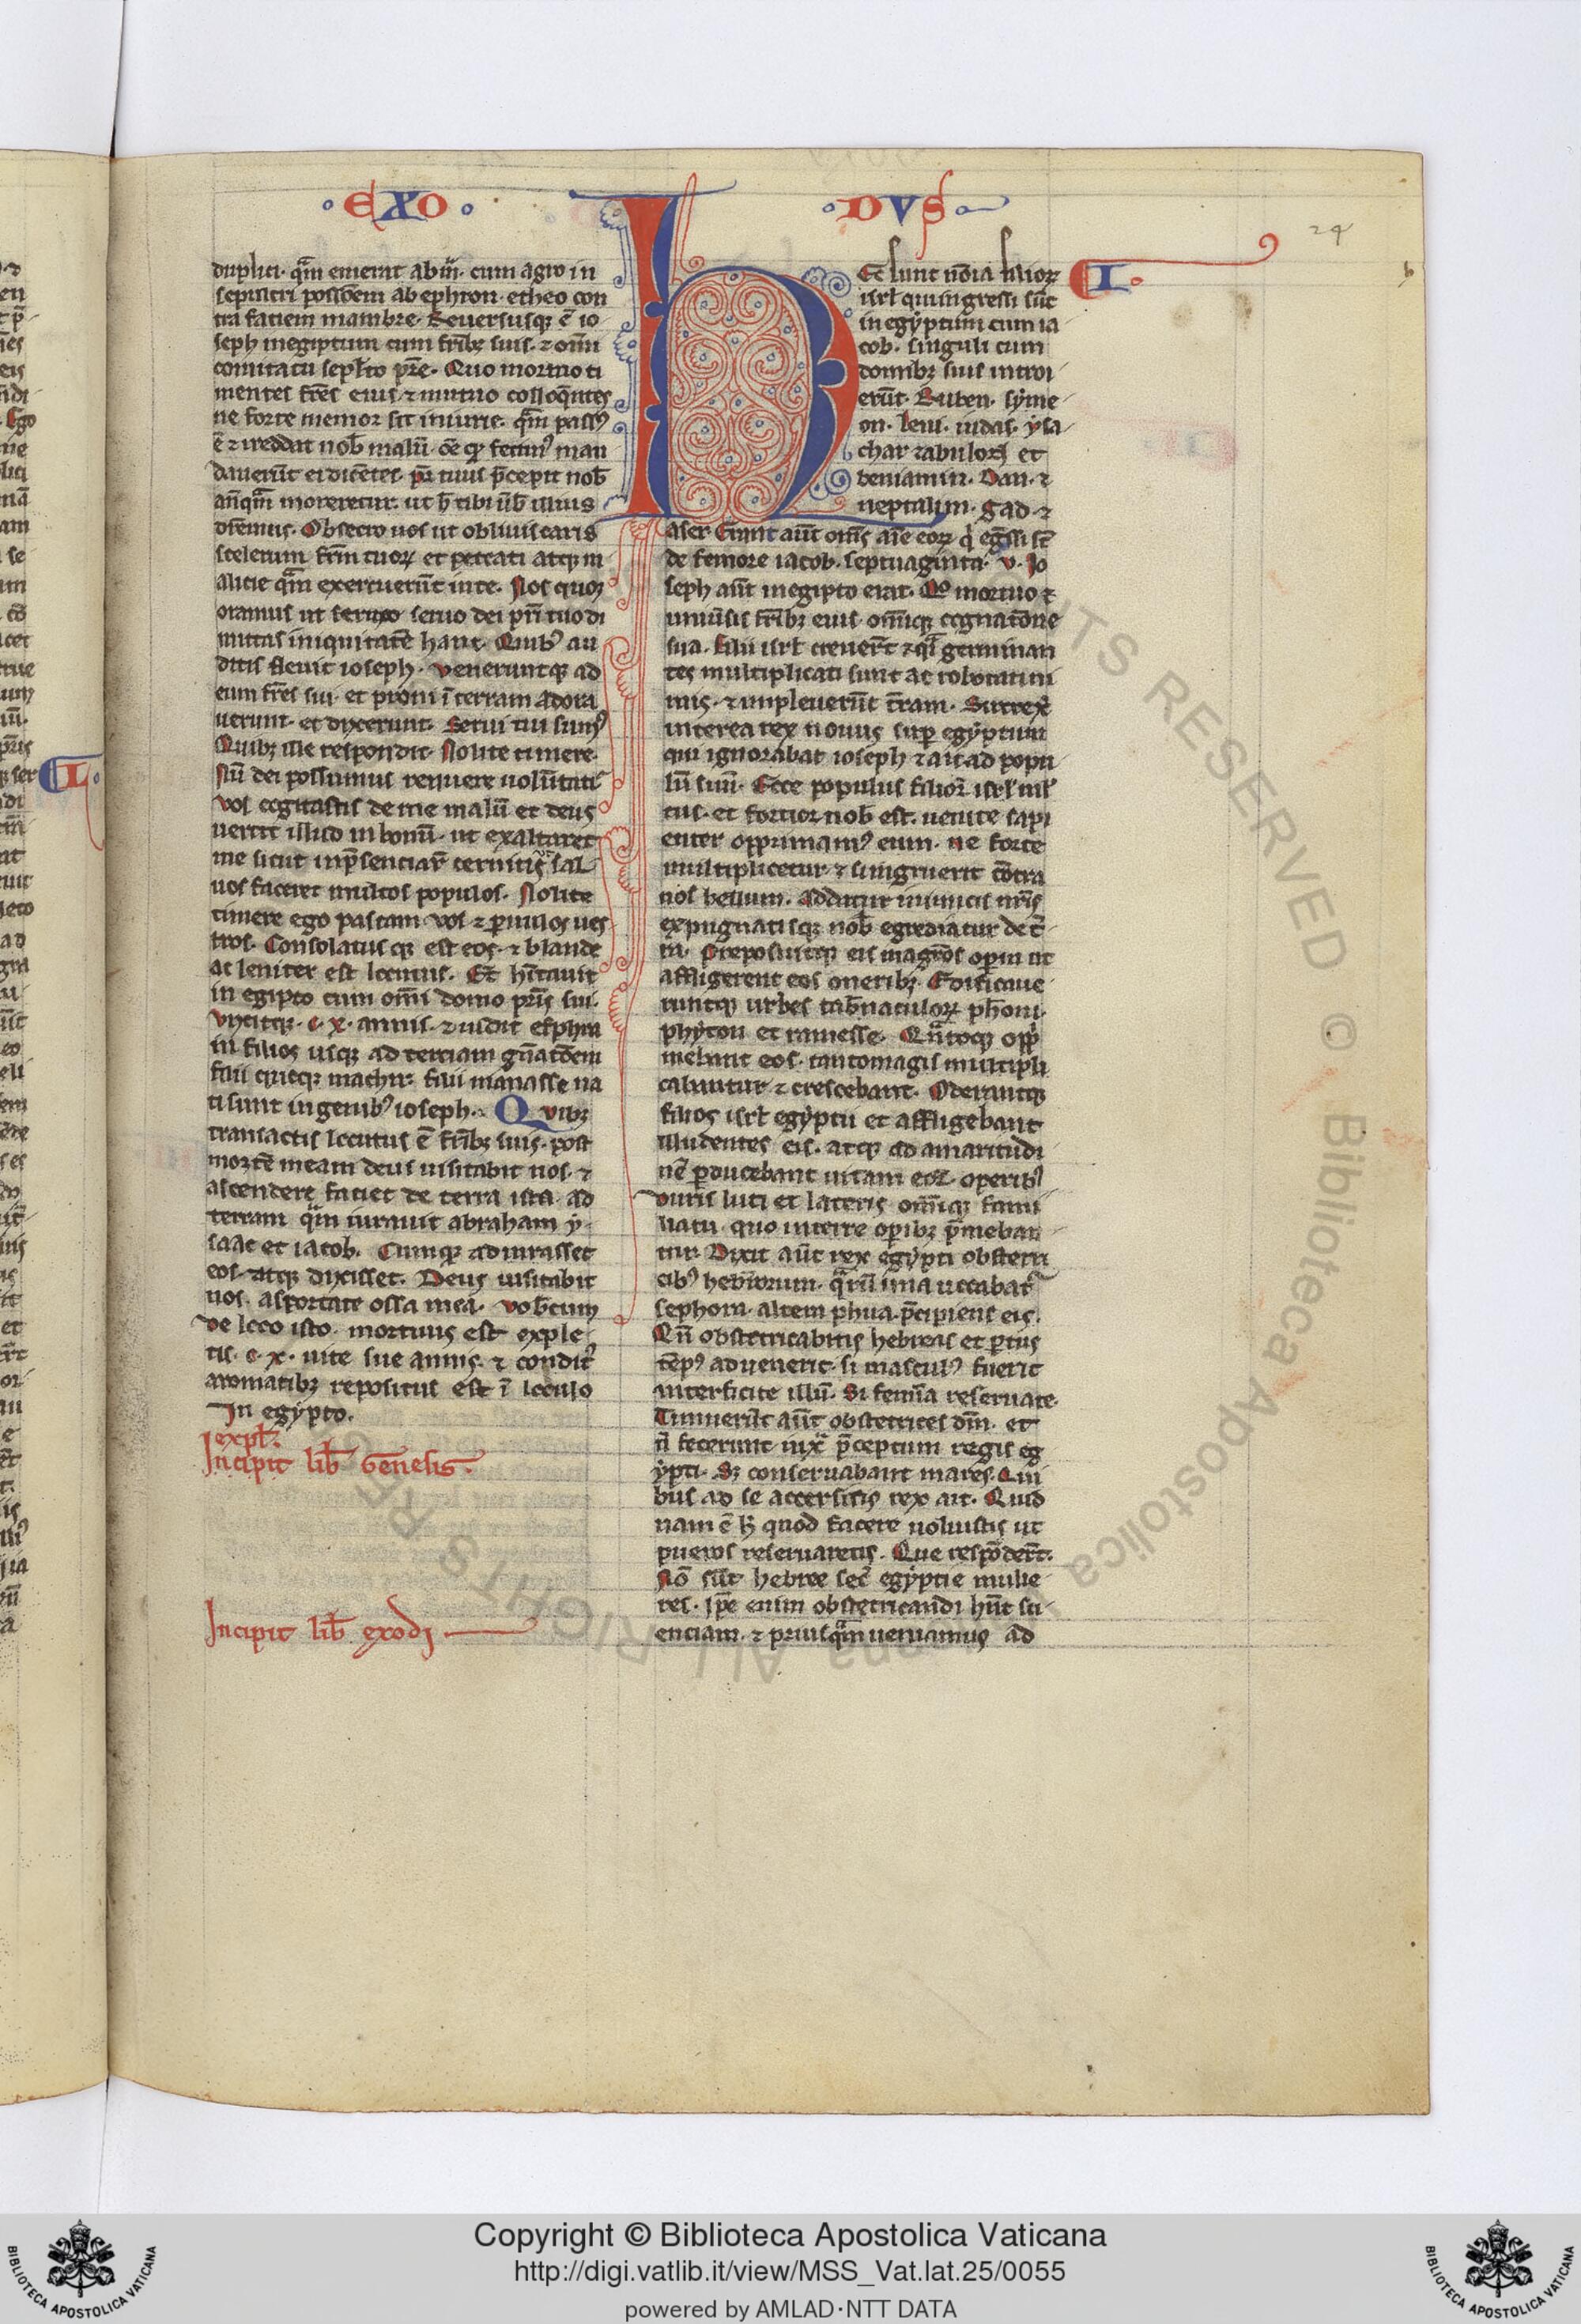 EXO DVS
24
I.
duplici. qm̃ emerat abrã. cum agro in
sepulcri possõem ab ephron. etheo con
tra faciem mambre. Reuersusq; ẽ io
seph in egiptum cum frĩbꝫ suis. ⁊ omĩ
comitatu sepl̃to pr̃e. Quo mortuo ti
mentes fr̃es eius. ⁊ mutuo colloq̃ntes
ne forte memor sit iniurie. qm̃ passꝰ
ẽ ⁊ reddat nob̃ malũ. õe qꝫ fecimꝰ man
dauer̃t ei dic̃etes. pr̃ tuus p̃cepit nob̃
añqm̃ moreretur. ut h̃ tibi ũb̃ illius
dic̃emus. Obsecro uos ut obliuiscaris
scelerum fr̃m tuoꝝ et peccati atqꝫ m
alicie qm̃ exercuer̃t in te. Nos quoqꝫ
oramus ut seruo dei pr̃i tuo di
mittas iniquitatẽ hanc. Quibꝰ au
ditis fleuit ioseph. Veneruntqꝫ ad
eum fr̃es sui. et proni ĩ terram adora
uerunt. et dixerunt. Serui tui sumꝰ
Quibꝫ ille respondit. Nolite timere.
Nũ dei possumus renuere uolũtati
Vos cogitastis de me malũ et deus
uertit illud in bonũ. ut exaltaret
me sicut inp̃senciaꝝ cernitis. ⁊ sal
uos faceret multos populos. Nolite
timere ego pascam vos ⁊ ꝑuulos ues
tros. Consolatus qꝫ est eos. ⁊ blande
ac leniter est locutus. Et hĩtauit
in egipto cum omĩ domo pr̃is sui.
Vixitqꝫ. c. x. annis. ⁊ uidit effra
im filios usqꝫ ad terciam gñatõem
filii quoqꝫ machir. filii manasse na
ti sunt in genibꝰ ioseph. Quibꝫ
transactis locutus ẽ frĩbꝫ suis. post
mortẽ meam deus uisitabit uos. ⁊
ascendere faciet de terra ista ad
terram qm̃ iurauit abraham y
saac et iacob. Cumqꝫ adiurasset
eos. atqꝫ dixisset. Deus uisitabit
uos. asportate ossa mea. Vob̃cum
de loco isto. mortuus est exple
tis. c. x. uite sue annis. ⁊ conditꝰ
aromatibꝫ repositus est ĩ loculo
In egypto.
expl̃.
Incipit lib̃ Genesis.
Incipit lib̃ exodi
I.
H
Ec sunt nõia filioꝝ
isrl̃ qui ingressi sũt
in egyptum cum ia
cob. singuli cum
domibꝫ suis introi
erũt. Ruben. syme
on. leui. iudas. ysa
char zabulon et
beniamin. Dan. ⁊
neptalim. gad. ⁊
aser Erant aũt om̃s aĩe eoꝝ q̃ eg̃ssi sũt
de femore iacob. septuaginta. v. Io
seph aũt in egipto erat. Quo mortuo ⁊
uniũsis frĩbꝫ eius. omĩqꝫ cognatõne
sua. filii isrl̃ creuer̃t ⁊ qĩ germinan
tes multiplicati sunt ac roborati ni
mis. ⁊ impleuerũt t̃ram. Surrexit
interea rex nouus suꝑ egyptum
qui ignorabat ioseph ⁊ ait ad popu
lũ suũ. Ecce populus filioꝝ isrl̃ mĺ
tus. et fortior nob̃ est. uenite sapi
enter opprimamꝰ eum. ne forte
multiplicetur. ⁊ si ingruerit cõtra
nos bellum. addatur inimicis nr̃is
expugnatisqꝫ nob̃ egrediatur de t̃
ra. Preposuitqꝫ eis magr̃os oꝑum ut
affligerent eos oneribꝫ. Edificaue
runtqꝫ urbes tab̃naculoꝝ pharaoni.
phyton et ramesse. Qñtoqꝫ opp̃
mebant eos. tantomagis multipli
cabantur ⁊ crescebant. Oderantqꝫ
filios isrl̃ egyptii et affligebant
illudentes eis. atqꝫ ad amaritudi
nẽ ꝑducebant uitam eoꝝ. operibꝰ
duris luti et lateris omĩqꝫ famu
latu quo in terre oꝑibꝫ p̃meban
tur Dixit aũt rex egypti obstetri
cibꝰ hebreorum. quaꝝ una uocabatʳ
sephora. altera phua. p̃cipiens eis.
Qñ obstetricabitis hebreas et ꝑtus
tẽpꝰ aduenerit. si masculꝰ fuerit
interficite illũ. Si femĩa reseruate.
Timuerũt aũt obstetrices dm̃. et
ñ fecerunt iuxᵃ p̃ceptum regis eg
ypti. Sꝫ conseruabant mares. Qui
bus ad se accersitis rex ait. Quid
nam ẽ h̃ quod facere uoluistis ut
pueros reseruaretis. Que respõder̃t.
Nõ sũt hebree sič egyptie mulie
res. Ipse enim obstetricandi hñt sci
enciam. ⁊ priusqm̃ ueniamus ad
ALL RIGHTS RESERVED © Biblioteca Apostolica Vaticana
Copyright © Biblioteca Apostolica Vaticana
http://digi.vatlib.it/view/MSS_Vat.lat.25/0055
powered by AMLAD·NTT DATA
BIBLIOTECA APOSTOLICA VATICANA
BIBLIOTECA APOSTOLICA VATICANA